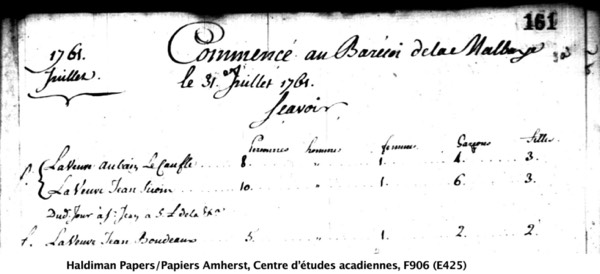 161
1761. Commencé au Barécoi de la Malbaye
Juillet. le 31.en Juillet 1761.
Scavoir
Personnes homme femme Garçons filles
La Veuve aubain Le Caufle 8. " 1. 4. 3.
La Veuve Jean 10. " 1. 6. 3.
Dud. Jour à St. Jean a 5 L de la
La Veuve Jean Boudeaux 5. " 1. 2. 2.
Haldiman Papers/Papiers Amherst, Centre d'études acadiennes, F906 (E425)